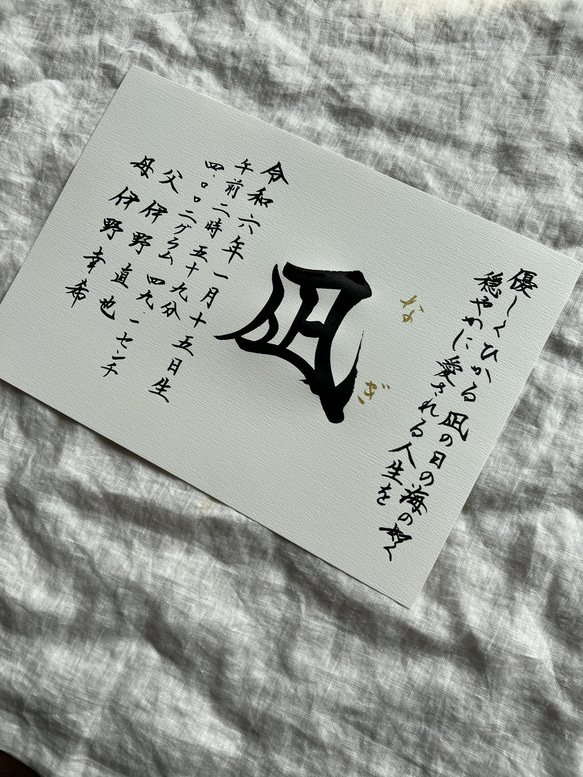 優しくひかる凪の日の海の如く
穏やかに愛される人生を
なぎ
凪
令和六年一月十五日生
午前二時五十九分
四〇〇二グラム 四九一センチ
父 伊野直也
母 伊野幸希